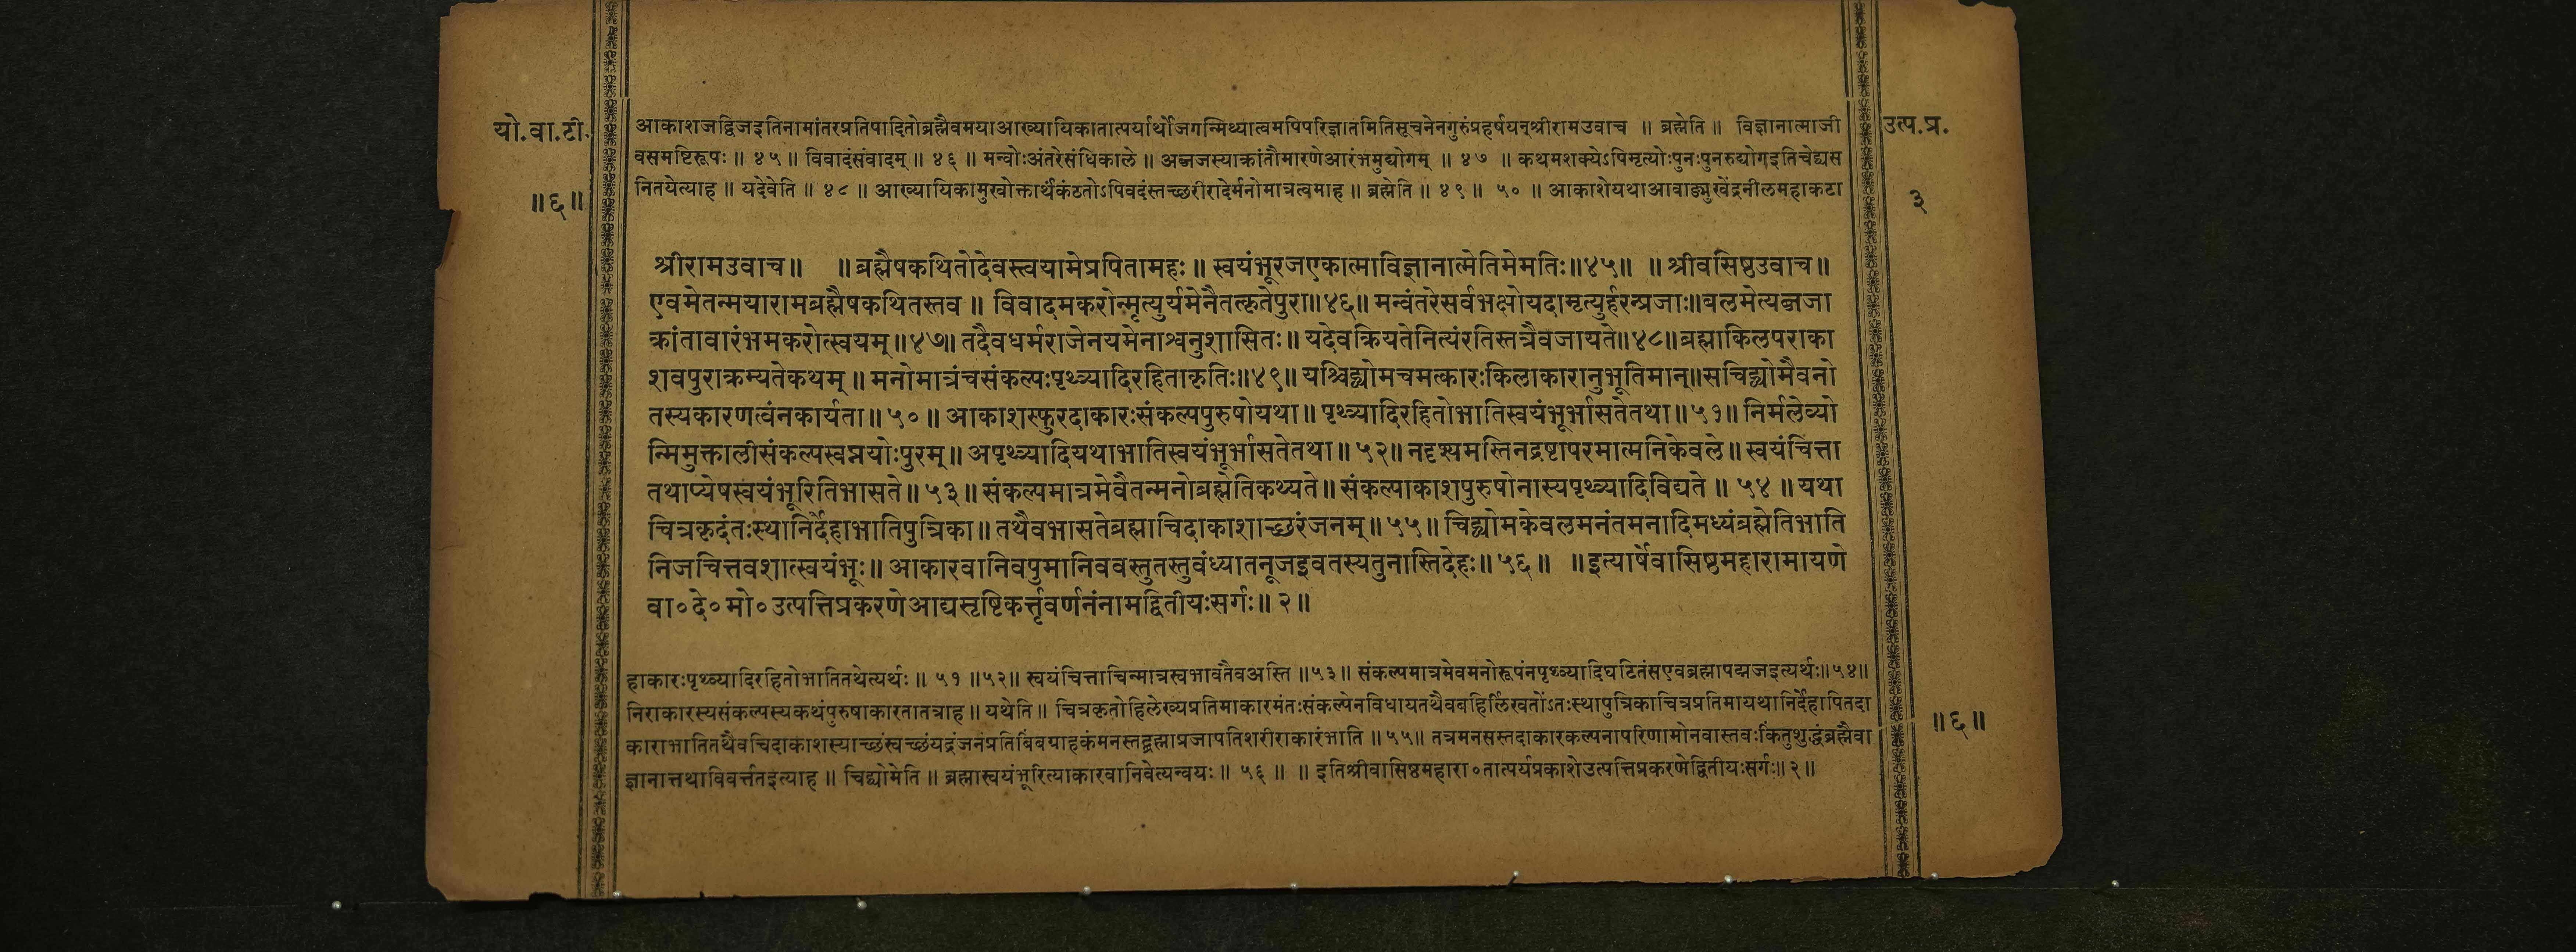 यो.वा.टी.
॥६॥
उत्प.प्र.
३
आकाशजद्विजइतिनामांतरप्रतिपादितोब्रह्मैवमयाआख्यायिकातात्पर्यार्थोजगन्मिथ्यात्वमपिपरिज्ञातमितिसूचनेनगुरुंप्रहर्षयन्श्रीरामउवाच ॥ ब्रह्मेति ॥ विज्ञानात्माजी
वसमष्टिरूपः ॥ ४५ ॥ विवादंसंवादम् ॥ ४६ ॥ मन्वोःअंतरेसंधिकाले ॥ अब्जजस्याक्रांतौमारणेआरंभमुद्योगम् ॥ ४७ ॥ कथमशक्येऽपिमृत्योःपुनःपुनरुद्योगइतिचेद्यस
नितयेत्याह ॥ यदेवेति ॥ ४८ ॥ आख्यायिकामुखोक्तार्थंकंठतोऽपिवदंस्तच्छरीरादेर्मनोमात्रत्वमाह ॥ ब्रह्मेति ॥ ४९ ॥ ५० ॥ आकाशेयथाआवाङ्मुखेंद्रनीलमहाकटा
श्रीरामउवाच॥ ॥ब्रह्मैषकथितोदेवस्त्वयामेप्रपितामहः॥ स्वयंभूरजएकात्माविज्ञानात्मेतिमेमतिः॥४५॥ ॥श्रीवसिष्ठउवाच॥
एवमेतन्मयारामब्रह्मैषकथितस्तव॥ विवादमकरोन्मृत्युर्यमेनैतत्कृतेपुरा॥४६॥ मन्वंतरेसर्वभक्षोयदामृत्युर्हरन्प्रजाः॥बलमेत्यब्जजा
क्रांतावारंभमकरोत्स्वयम्॥४७॥ तदैवधर्मराजेनयमेनाश्वनुशासितः॥ यदेवक्रियतेनित्यंरतिस्तत्रैवजायते॥४८॥ब्रह्माकिलपराका
शवपुराक्रम्यतेकथम्॥ मनोमात्रंचसंकल्पःपृथ्व्यादिरहिताकृतिः॥४९॥ यश्चिद्व्योमचमत्कारःकिलाकारानुभूतिमान्॥सचिद्व्योमैवनो
तस्यकारणत्वंनकार्यता॥५०॥ आकाशस्फुरदाकारःसंकल्पपुरुषोयथा॥ पृथ्व्यादिरहितोभातिस्वयंभूर्भासतेतथा॥५१॥ निर्मलेव्यो
म्निमुक्तालीसंकल्पस्वप्नयोःपुरम्॥ अपृथ्व्यादियथाभातिस्वयंभूर्भासतेतथा॥५२॥ नदृश्यमस्तिनद्रष्टापरमात्मनिकेवले॥ स्वयंचित्ता
तथाप्येषस्वयंभूरितिभासते॥५३॥ संकल्पमात्रमेवैतन्मनोब्रह्मेतिकथ्यते॥ संकल्पाकाशपुरुषोनास्यपृथ्व्यादिविद्यते॥ ५४॥ यथा
चित्रकृदंतःस्थानिर्देहाभातिपुत्रिका॥ तथैवभासतेब्रह्माचिदाकाशाच्छरंजनम्॥५५॥ चिद्व्योमकेवलमनंतमनादिमध्यंब्रह्मेतिभाति
निजचित्तवशात्स्वयंभूः॥ आकारवानिवपुमानिववस्तुतस्तुवंध्यातनूजइवतस्यतुनास्तिदेहः॥५६॥ ॥इत्यार्षेवासिष्ठमहारामायणे
वा०दे०मो०उत्पत्तिप्रकरणेआद्यसृष्टिकर्त्तृवर्णनंनामद्वितीयःसर्गः॥२॥
हाकारःपृथ्व्यादिरहितोभातितथेत्यर्थः ॥ ५१ ॥५२॥ स्वयंचित्ताचिन्मात्रस्वभावतैवअस्ति ॥५३॥ संकल्पमात्रमेवमनोरूपंनपृथ्व्यादिघटितंसएवब्रह्मापद्मजइत्यर्थः॥५४॥
निराकारस्यसंकल्पस्यकथंपुरुषाकारतातत्राह ॥ यथेति ॥ चित्रकृतोहिलेख्यप्रतिमाकारमंतःसंकल्पेनविधायतथैवबहिर्लिखतोंऽतःस्थापुत्रिकाचित्रप्रतिमायथानिर्देहापितदा
काराभातितथैवचिदाकाशस्याच्छंस्वच्छंयद्रंजनंप्रतिबिंबग्राहकंमनस्तद्ब्रह्माप्रजापतिशरीराकारंभाति ॥५५॥ तत्रमनसस्तदाकारकल्पनापरिणामोनवास्तवःकिंतुशुद्धंब्रह्मैवा
ज्ञानात्तथाविवर्त्ततइत्याह ॥ चिद्व्योमेति ॥ ब्रह्मास्वयंभूरित्याकारवानिवेत्यन्वयः ॥ ५६ ॥ ॥ इतिश्रीवासिष्ठमहारा०तात्पर्यप्रकाशेउत्पत्तिप्रकरणेद्वितीयःसर्गः॥२॥
॥६॥